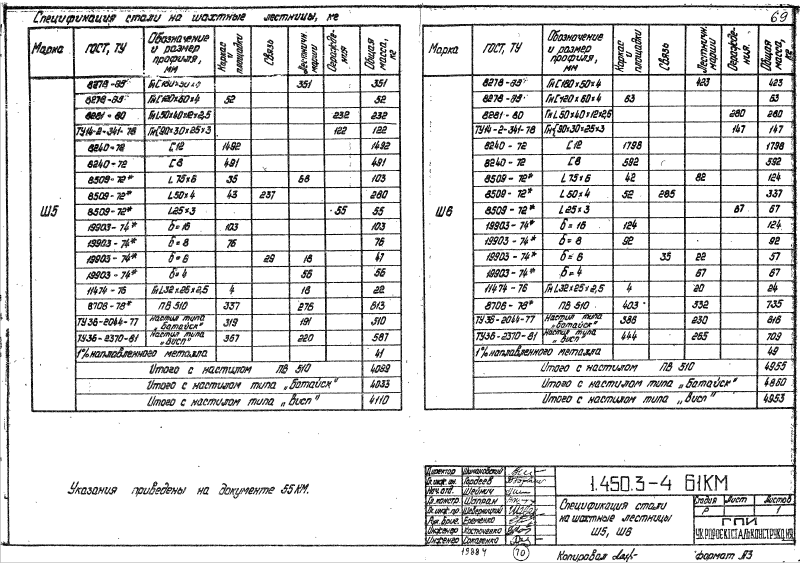 Спецификация стали на шахтные лестницы, кг
69
Марка ГОСТ, ТУ Обозначение и размер профиля, мм Каркас и площадки Связь Лестничн. марши Ограждения Общая масса, кг
Ш5
8278-83 Гн[180×50×4 351 351
8278-83 Гн[120×60×4 52 52
8281-80 ГнL50×40×12×2,5 232 232
ТУ14-2-341-78 Гн{90×30×25×3 122 122
8240-72 [12 1492 1492
8240-72 [8 491 491
8509-72* L75×6 35 68 103
8509-72* L50×4 43 237 280
8509-72* L25×3 55 55
19903-74* δ=16 103 103
19903-74* δ=8 76 76
19903-74* δ=6 29 18 47
19903-74* δ=4 56 56
11474-76 ГнL32×25×2,5 4 18 22
8706-78* ПВ 510 337 276 613
ТУ36-2044-77 Настил типа „Батайск" 319 191 510
ТУ36-2370-81 Настил типа „Висп" 367 220 587
1% наплавленного металла 41
Итого с настилом ПВ 510 4089
Итого с настилом типа „Батайск" 4033
Итого с настилом типа „Висп" 4110
Марка ГОСТ, ТУ Обозначение и размер профиля, мм Каркас и площадки Связь Лестничн. марши Ограждения. Общая масса, кг
Ш6
8278-83 Гн[180×50×4 423 423
8278-83 Гн[120×60×4 63 63
8281-80 ГнL50×40×12×2,5 280 280
ТУ14-2-341-78 Гн{90×30×25×3 147 147
8240-72 [12 1798 1798
8240-72 [8 592 592
8509-72* L75×6 42 82 124
8509-72* L50×4 52 285 337
8509-72* L25×3 67 67
19903-74* δ=16 124 124
19903-74* δ=8 92 92
19903-74* δ=6 35 22 57
19903-74* δ=4 67 67
11474-76 ГнL32×25×2,5 4 20 24
8706-78* ПВ 510 403 332 735
ТУ36-2044-77 Настил типа „Батайск" 386 230 616
ТУ36-2370-81 Настил типа „Висп" 444 265 709
1% наплавленного металла 49
Итого с настилом ПВ 510 4955
Итого с настилом типа „Батайск" 4860
Итого с настилом типа „Висп" 4953
Указания приведены на документе 55КМ.
Директор Шимановский
Гл.инж.ин. Гордеев
Нач.отд. Шейнич
Гл.констр. Шапран
Гл.инж.пр. Шеверницкий
Рук.бриг. Еременко
Инженер
Инженер
1.450.3-4 61КМ
Спецификация стали на шахтные лестницы Ш5, Ш6
Стадия Лист Листов
Р 1
ГПИ
УКРПРОЕКТСТАЛЬКОНСТРУКЦИЯ
70
Копировал
формат А3